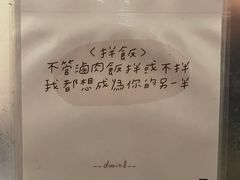 〈拌飯〉
不管滷肉飯拌或不拌
我都想成為你的另一半
--dmin8--